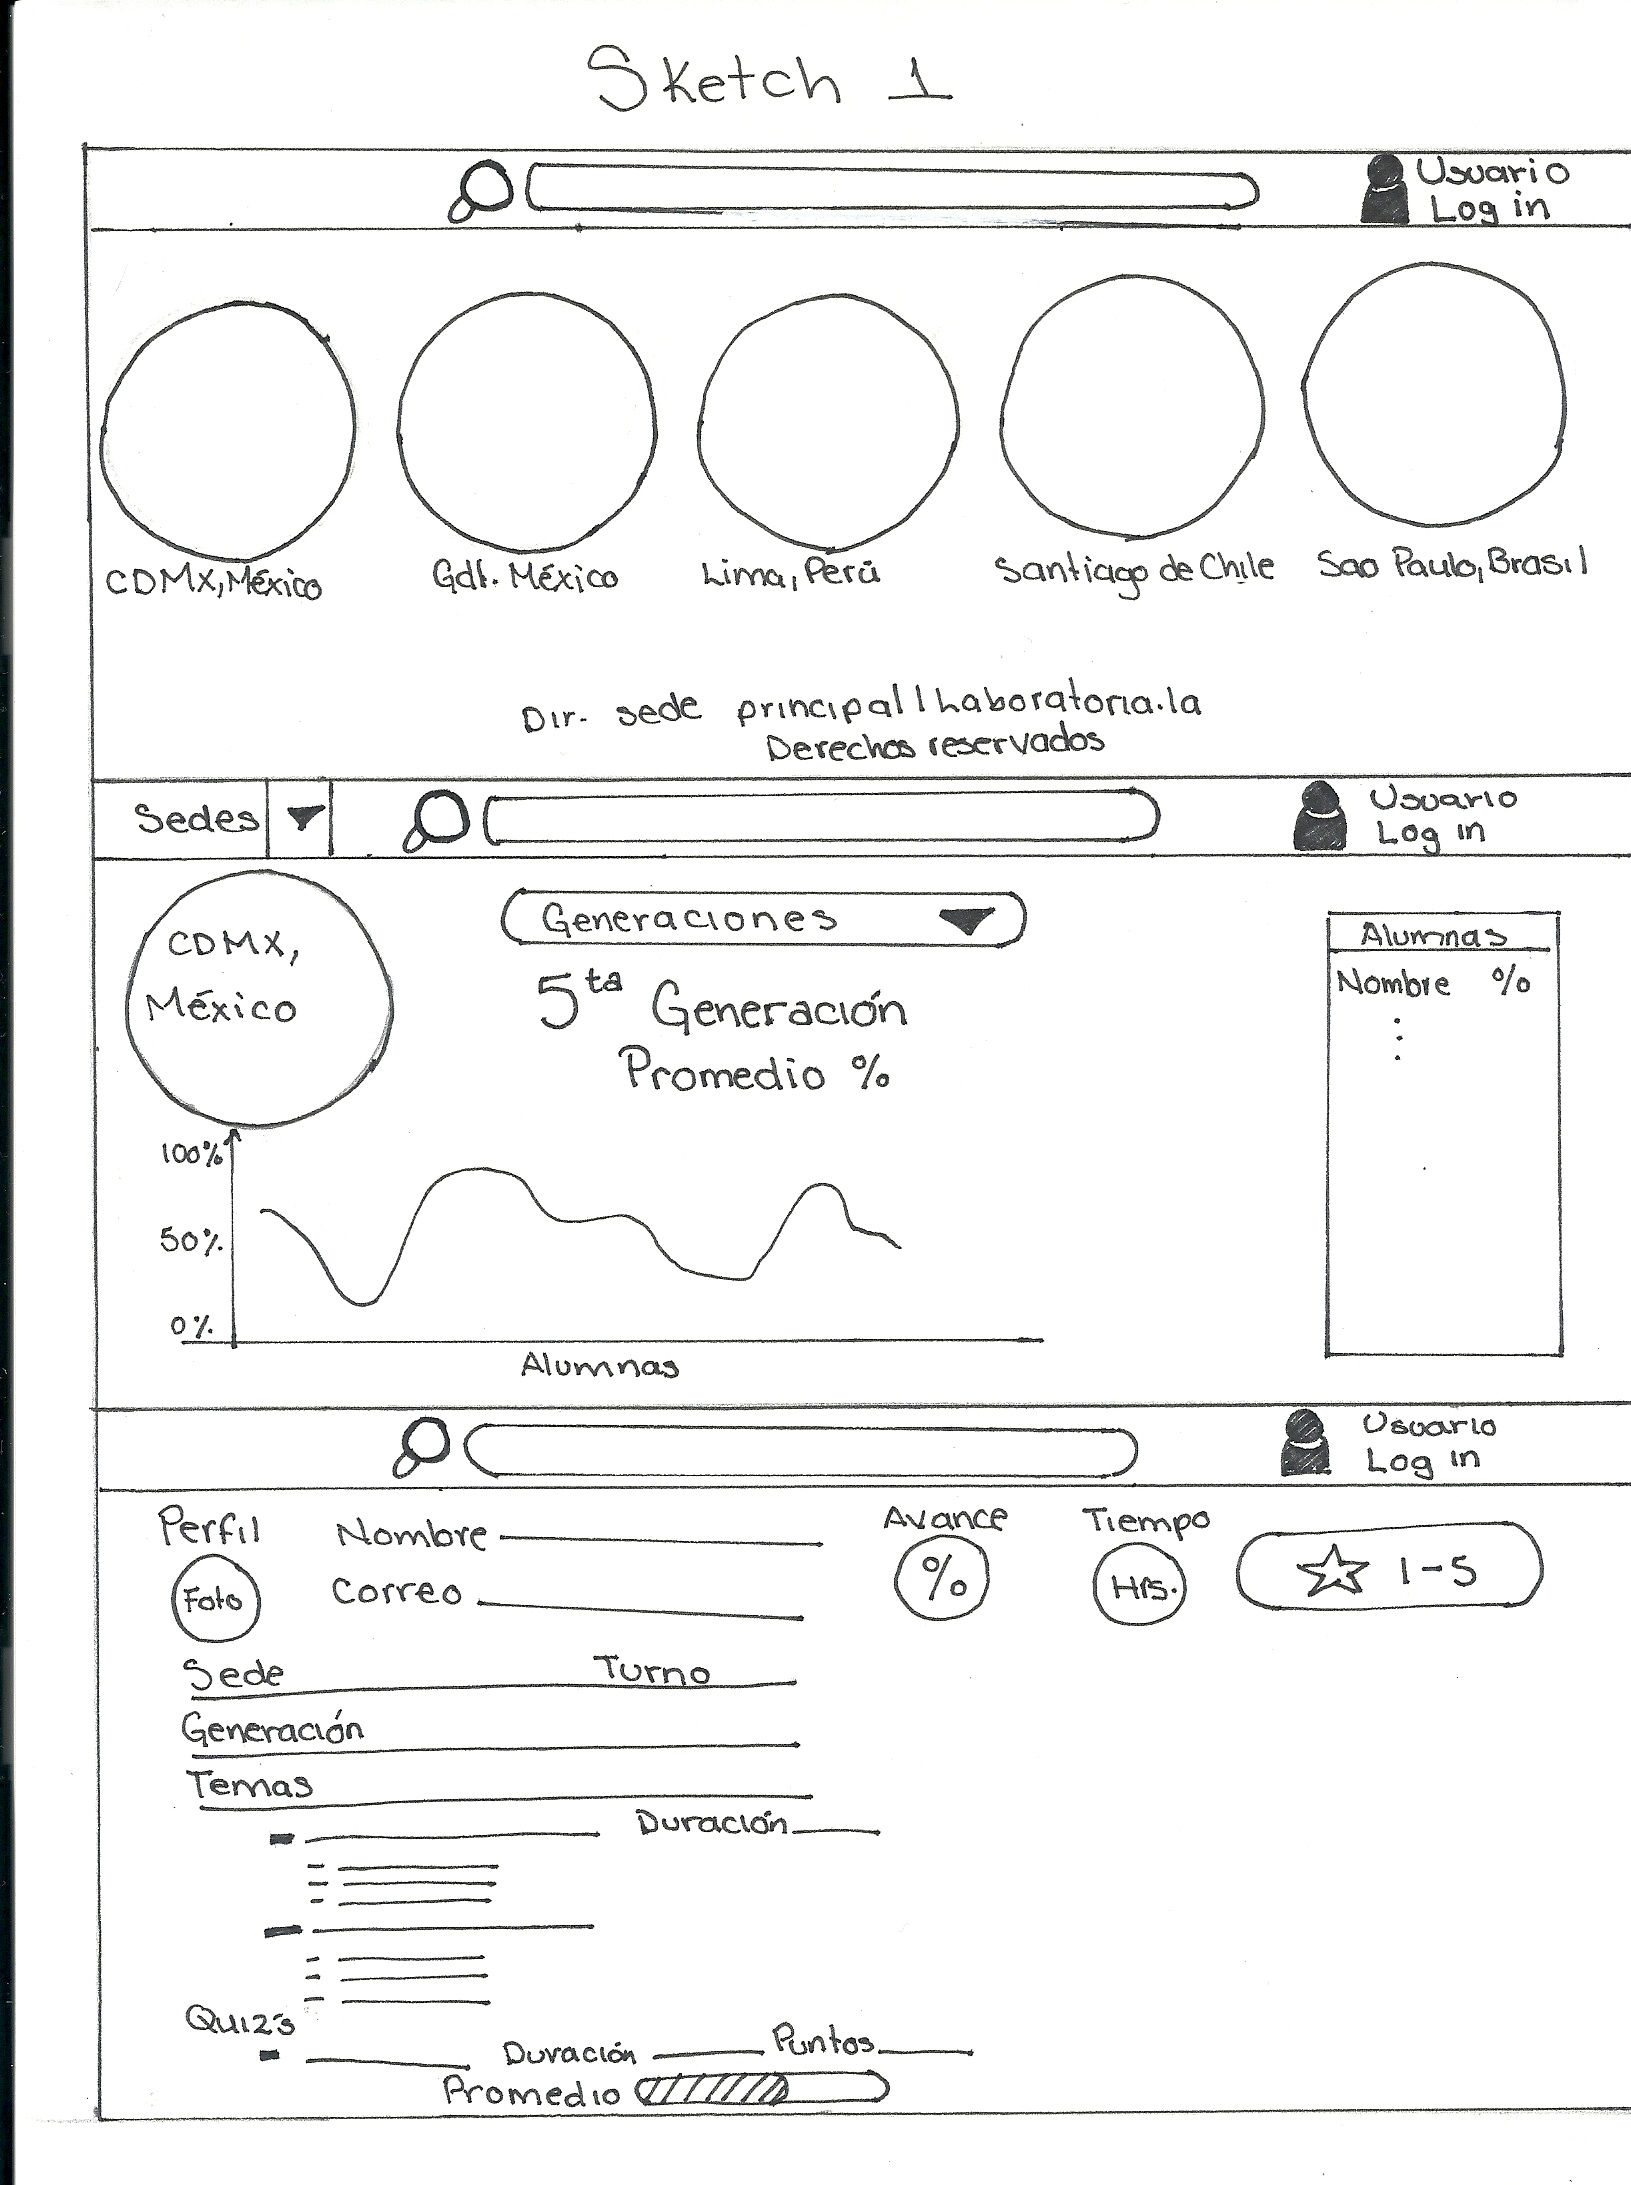 Sketch 1
Usuario
Log in
CDMX, México
Gdl. México
Lima, Perú
Santiago de Chile
Sao Paulo, Brasil
Dir. sede principal | Laboratoria.la
Derechos reservados
Sedes
Usuario
Log in
CDMX,
México
Generaciones
5ta Generación
Promedio %
Alumnas
Nombre %
100%
50%
0%
Alumnas
Usuario
Log in
Perfil
Foto
Nombre
Correo
Avance
%
Tiempo
Hrs.
1-5
Sede Turno
Generación
Temas
Duración
Quiz's
Duración Puntos
Promedio